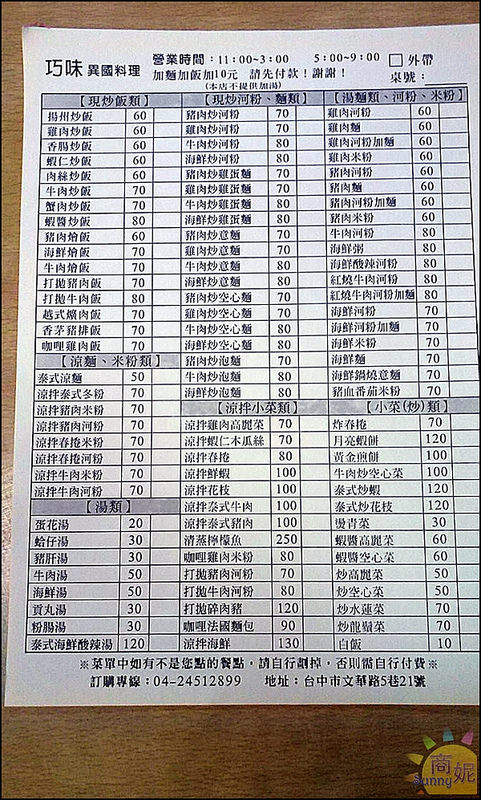 巧味 異國料理
營業時間：11:00~3:00　5:00~9:00 □外帶
加麵加飯加10元　請先付款！謝謝！
(本店不提供加湯)
桌號：
【現炒飯類】
揚州炒飯 60
雞肉炒飯 60
香腸炒飯 60
蝦仁炒飯 60
肉絲炒飯 60
牛肉炒飯 70
蟹肉炒飯 70
蝦醬炒飯 80
豬肉燴飯 60
海鮮燴飯 70
牛肉燴飯 70
打拋豬肉飯 70
打拋牛肉飯 80
越式爌肉飯 70
香茅豬排飯 70
咖哩雞肉飯 70
【涼麵、米粉類】
泰式涼麵 50
涼拌泰式冬粉 70
涼拌豬肉米粉 70
涼拌豬肉河粉 70
涼拌春捲米粉 70
涼拌春捲河粉 70
涼拌牛肉米粉 70
涼拌牛肉河粉 70
【湯類】
蛋花湯 20
蛤仔湯 30
豬肝湯 30
牛肉湯 50
海鮮湯 50
貢丸湯 30
粉腸湯 30
泰式海鮮酸辣湯 120
【現炒河粉、麵類】
豬肉炒河粉 70
雞肉炒河粉 70
牛肉炒河粉 80
海鮮炒河粉 80
豬肉炒雞蛋麵 70
雞肉炒雞蛋麵 70
牛肉炒雞蛋麵 80
海鮮炒雞蛋麵 80
豬肉炒意麵 70
雞肉炒意麵 70
牛肉炒意麵 80
海鮮炒意麵 80
豬肉炒空心麵 70
雞肉炒空心麵 70
牛肉炒空心麵 80
海鮮炒空心麵 80
豬肉炒泡麵 70
牛肉炒泡麵 80
海鮮炒泡麵 80
【涼拌小菜類】
涼拌雞肉高麗菜 70
涼拌蝦仁木瓜絲 70
涼拌春捲 80
涼拌鮮蝦 100
涼拌花枝 100
涼拌泰式牛肉 100
涼拌泰式豬肉 100
清蒸檸檬魚 250
咖哩雞肉米粉 80
打拋豬肉河粉 70
打拋牛肉河粉 80
打拋碎肉豬 120
咖哩法國麵包 90
涼拌海鮮 130
【湯麵類、河粉、米粉】
雞肉河粉 60
雞肉麵 60
雞肉河粉加麵 60
雞肉米粉 60
豬肉河粉 60
豬肉麵 60
豬肉河粉加麵 60
豬肉米粉 60
牛肉河粉 60
海鮮粥 80
海鮮酸辣河粉 80
紅燒牛肉河粉 80
紅燒牛肉河粉加麵 80
海鮮河粉 70
海鮮河粉加麵 70
海鮮米粉 70
海鮮麵 70
海鮮鍋燒意麵 70
豬血番茄米粉 70
【小菜(炒)類】
炸春捲 70
月亮蝦餅 120
黃金煎餅 100
牛肉炒空心菜 100
泰式炒蝦 120
泰式炒花枝 120
燙青菜 30
蝦醬高麗菜 60
蝦醬空心菜 60
炒高麗菜 50
炒空心菜 50
炒水蓮菜 70
炒龍鬚菜 70
白飯 10
※菜單中如有不是您點的餐點，請自行劃掉，否則需自行付費※
訂購專線：04-24512899　地址：台中市文華路5巷21號
商妮
Sunny